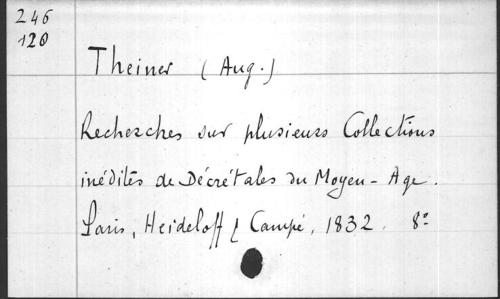 246
120
Theiner (Aug.)
Recherches sur plusieurs Collections
inédites de Décrétales du Moyen-Age.
Paris, Heideloff & Campé, 1832. 8º